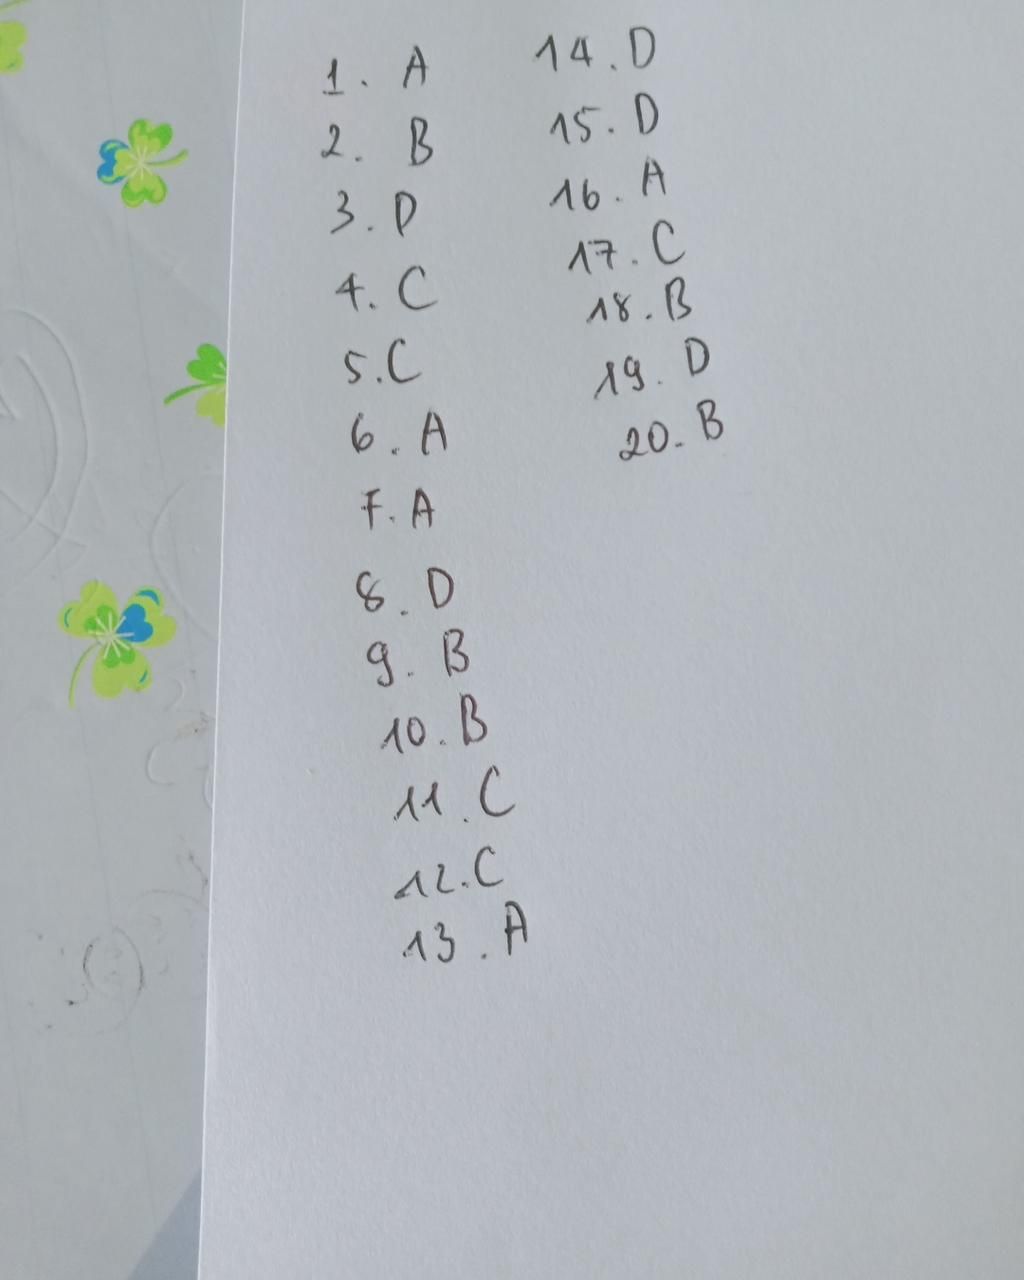 1. A
2. B
3. D
4. C
5. C
6. A
7. A
8. D
9. B
10. B
11. C
12. C
13. A
14. D
15. D
16. A
17. C
18. B
19. D
20. B